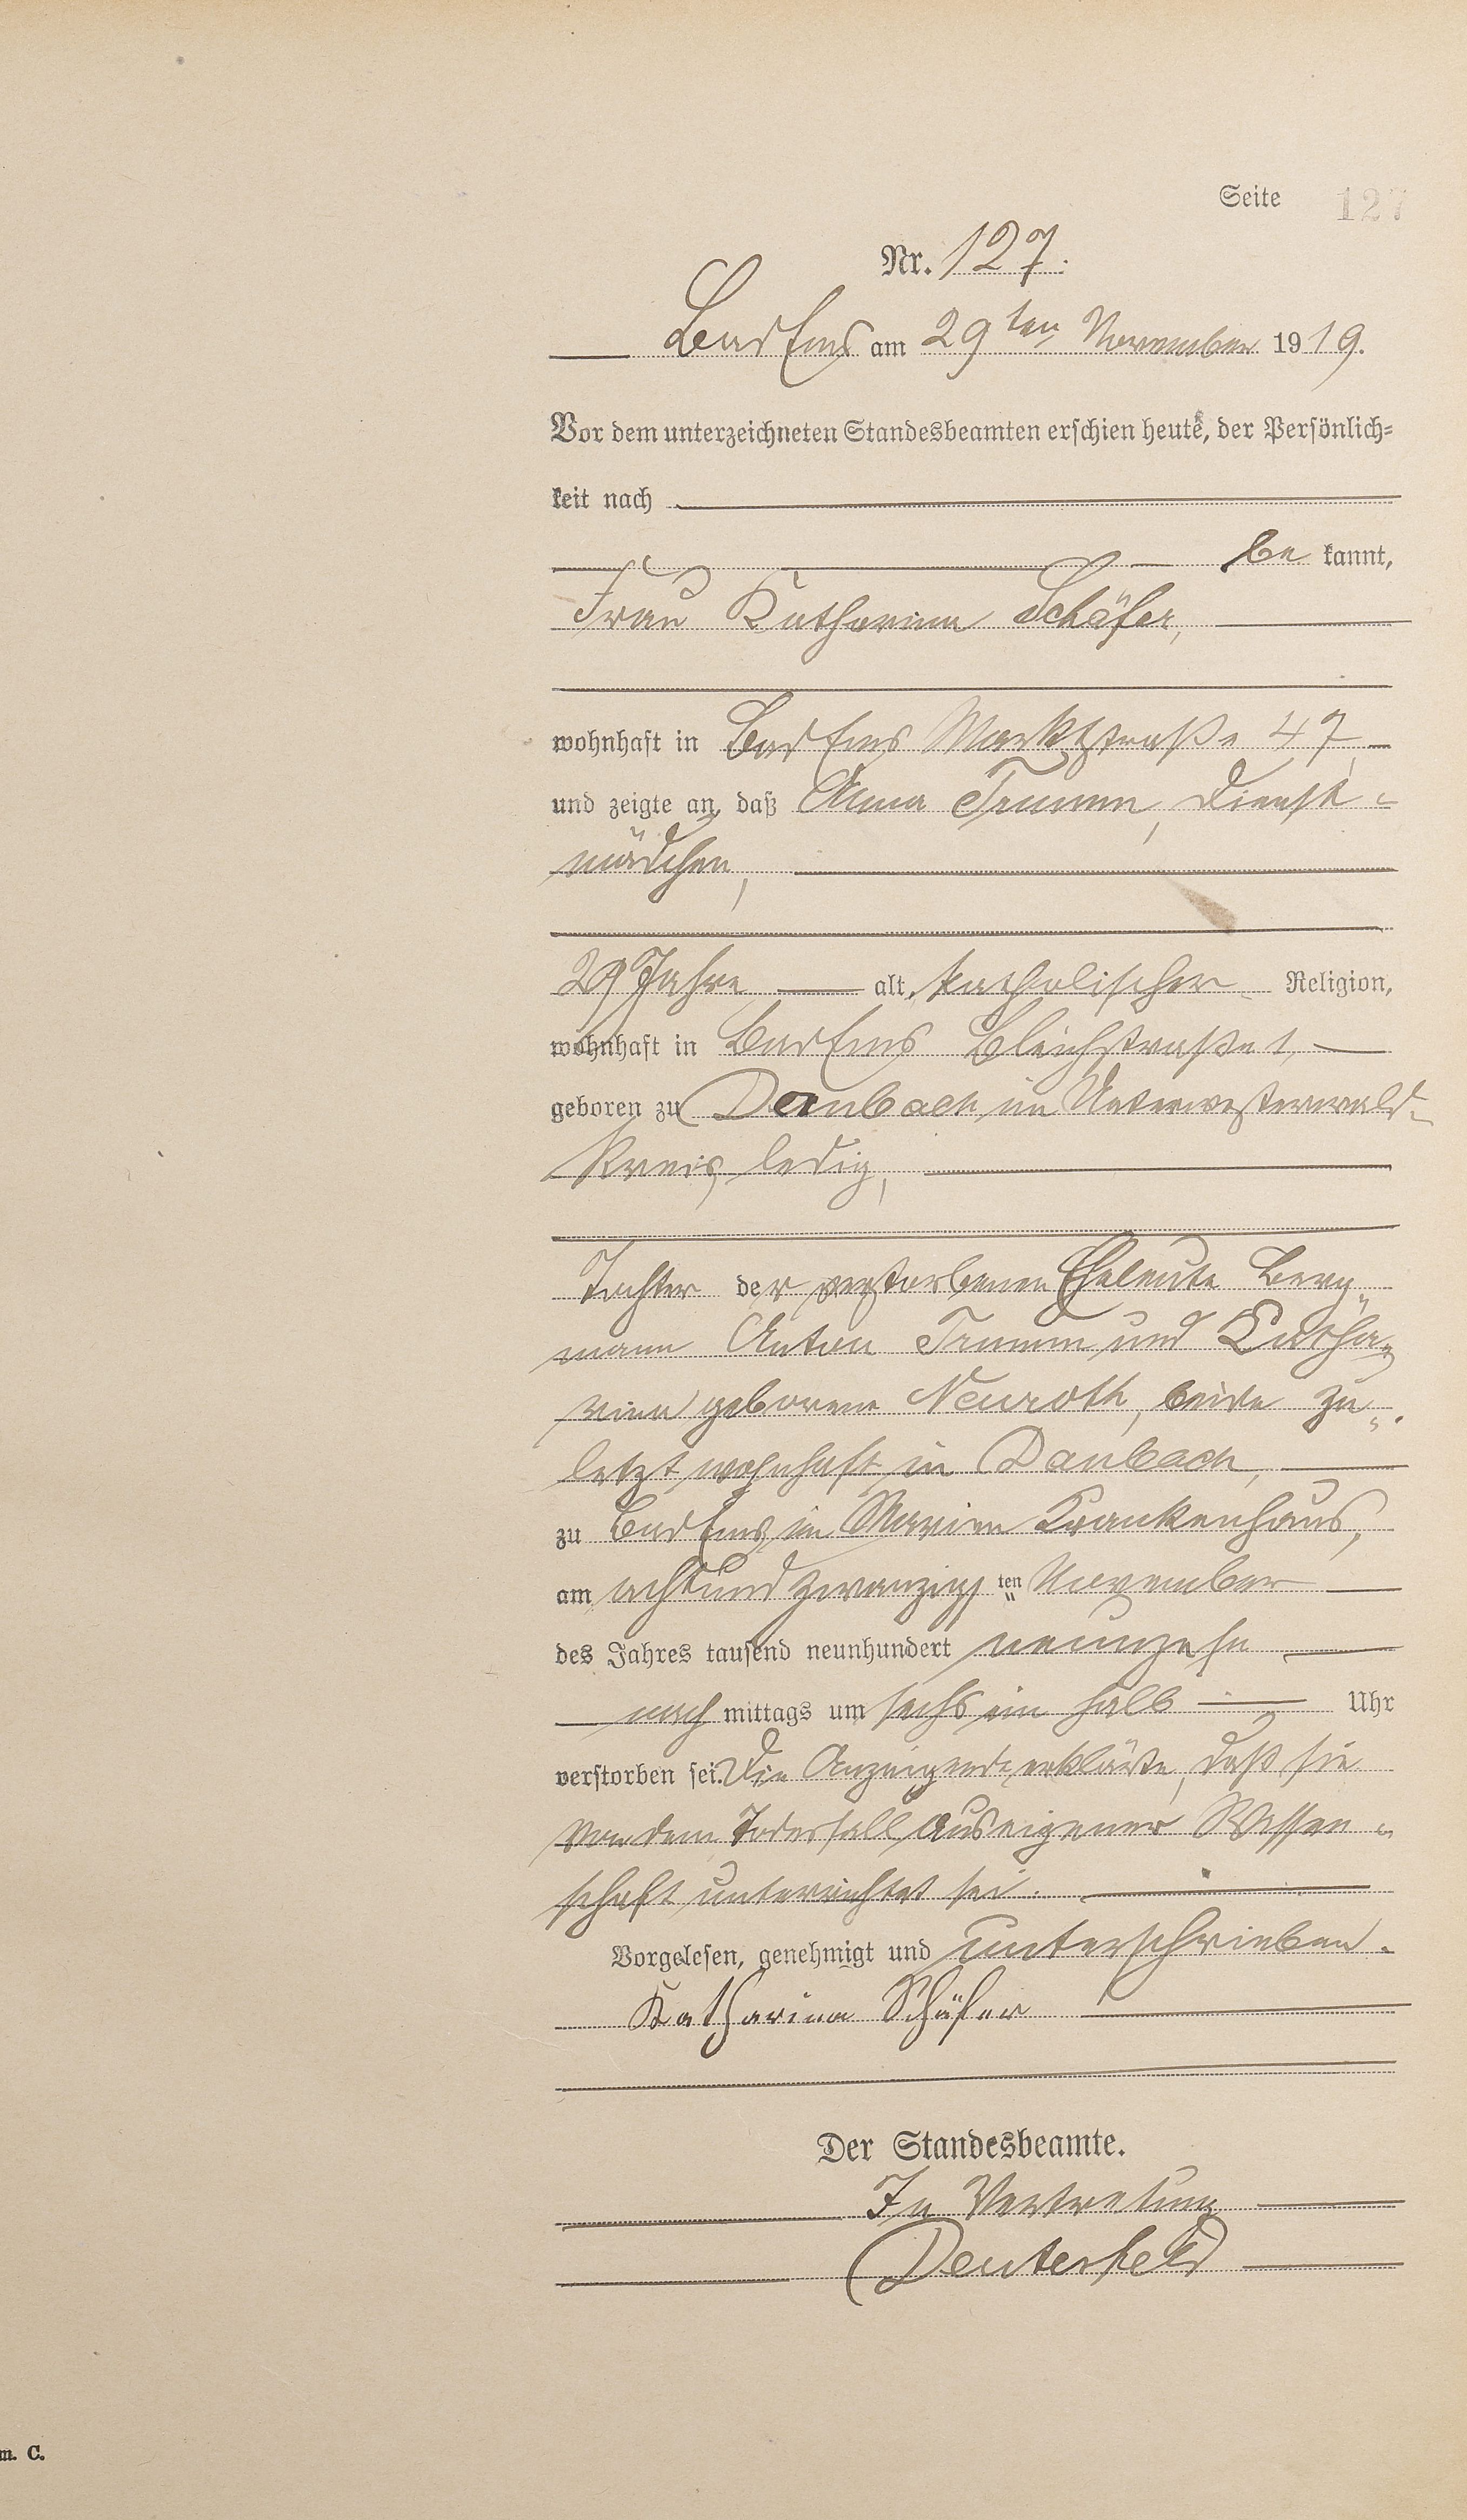 Seite 127
Nr. 127.
Bad Ems am 29ten November 1919.
Vor dem unterzeichneten Standesbeamten erschien heute, der Persönlich-
keit nach
be kannt,
Frau Katharina Schäfer,
wohnhaft in Bad Ems Marktstraße 47,
und zeigte an, daß Anna Trumm, Dienst-
mädchen,
29 Jahre alt, katholischer Religion,
wohnhaft in Bad Ems Bleichstraße 1,
geboren zu Dernbach im Unterwesterwald-
kreis, ledig,
Tochter der verstorbenen Eheleute Berg-
mann Anton Trumm und Katha-
rina geborene Neuroth, beide zu-
letzt wohnhaft in Dernbach,
zu Bad Ems, im Marien Krankenhaus,
am achtundzwanzigsten November
des Jahres tausend neunhundert neunzehn
nach mittags um sechs ein halb Uhr
verstorben sei. Die Anzeigende erklärte, daß sie
von dem Todesfall aus eigener Wissen-
schaft unterrichtet sei.
Vorgelesen, genehmigt und unterschrieben.
Katharina Schäfer
Der Standesbeamte.
In Vertretung
Deuterfeld
m. C.